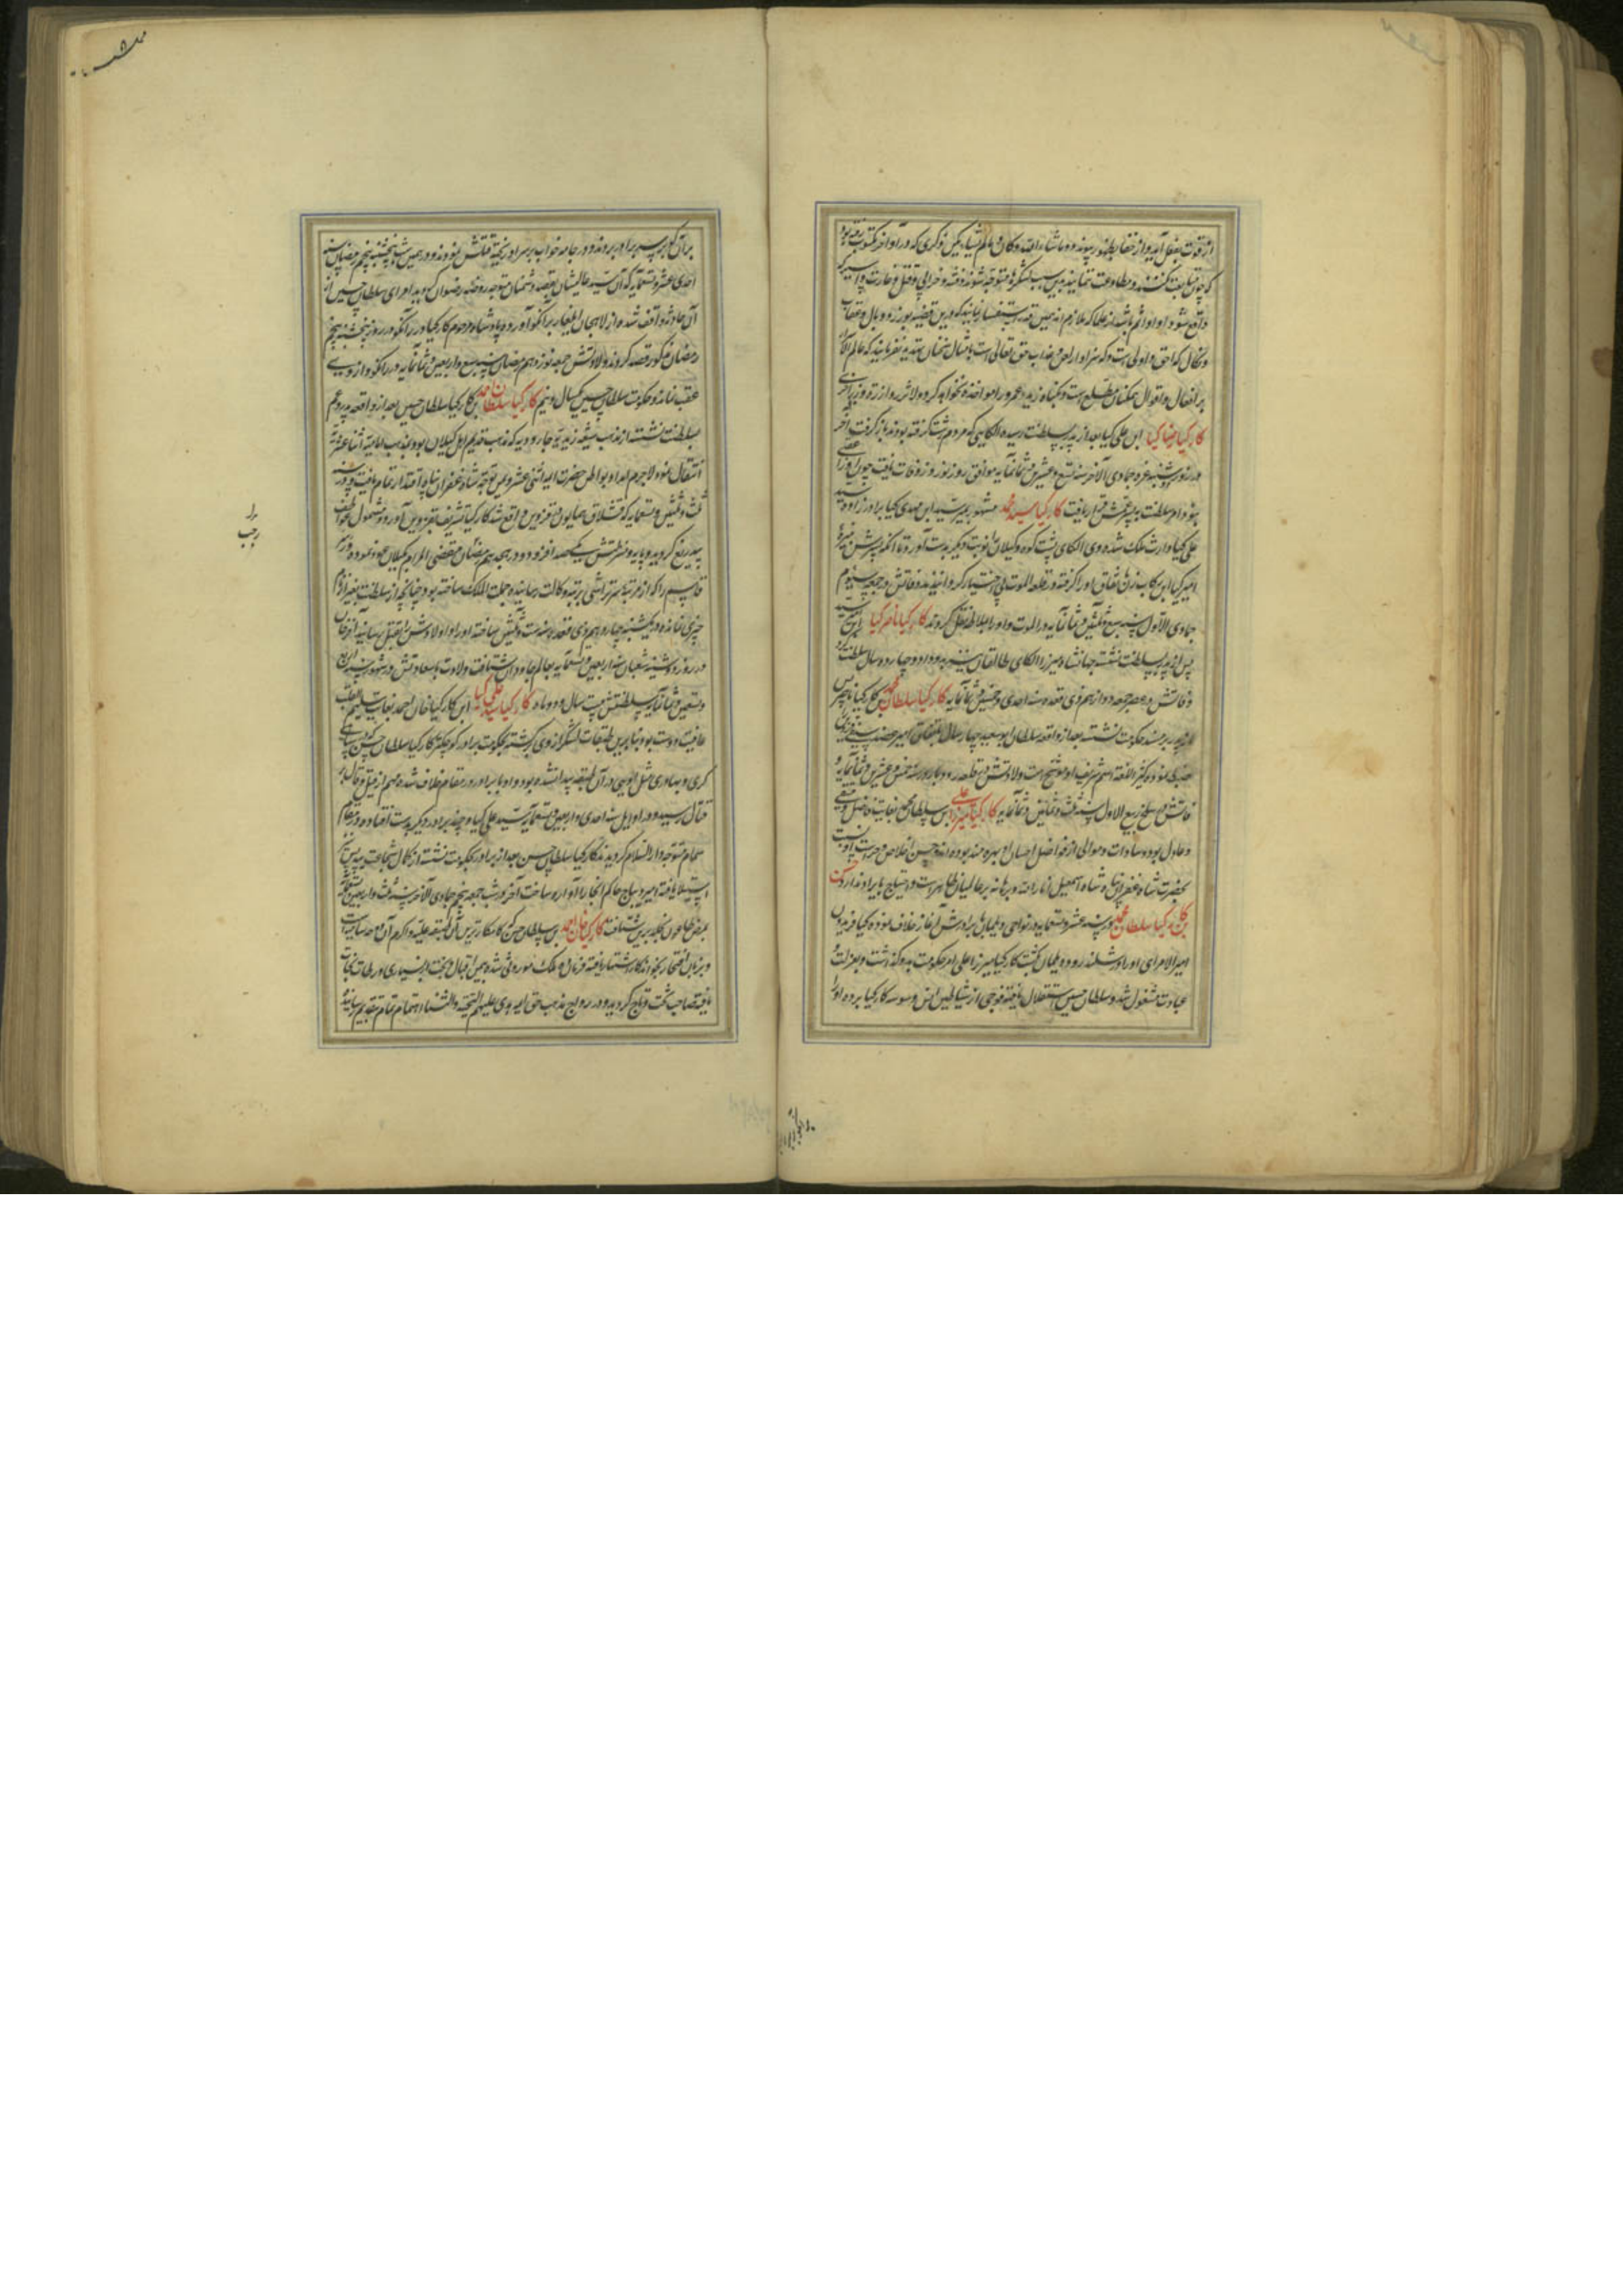 از قوت بفعل آید و از خفا بظهور پیوندد و ما شاء الله کان و ما لم یشاء لم یکن
که چون متابعت نکنند و مطاوعت ننمایند بدین سبب لشکرها متوجه شوند و فتنه و خرابی و قتل و غارت و اسیر
واقع شود او را اثم باشد از علما که ملازم اند همین قدر استفسار نمایند که درین قضیه بوزر و وبال و عقاب
و نکال که احق و اولی است و که سزاوار لعن و عذاب حق تعالی است بامثال سخنان تهدید نفرمایند که عالم السر
بر افعال و اقوال همکنان مطلع است و بگناه زید عمرو را مواخذه نخواهد کرد ولا تزر وازرة وزر اخری
کارکیا رضا کیا ابن علی کیا بعد از پدر بسلطنت رسیده الکایی که مردم رشت گرفته بودند باز گرفت
در روز شنبه غره جمادی الآخر سنه تسع و عشرین و ثمانمایه موافق روز نوروز وفات یافت چون او را
نبود امر سلطنت به پسر عمش قرار یافت کارکیا سید محمد مشهور بمیر سید ابن مهدی کیا برادرزاده سید
علی کیا وارث ملک شده وی الکای پشت کوه و گیلان را نوبت دیگر بدست آورد تا آنکه پسرش
امیر کیا این رکاب زن نفاق او را گرفته در قلعه الموت بی اختیار گردانیدند وفاتش در جمعه سیوم
جمادی الاول سنه سبع و ثلثین و ثمانمایه در الموت و او را بملاط نقل کردند کارکیا ناصر کیا ابن سید
پس از پدر بسلطنت نشسته جهانشاه میرزا الکای طالقان نیز بدو داد و چهارده سال سلطنت کرد
وفاتش در عصر جمعه دوازدهم ذی قعده سنه احدی و خمسین و ثمانمایه کارکیا سلطان محمد بن کارکیا ناصر پس
از پدر بر مسند حکومت نشسته بعد از واقعه سلطان ابوسعید چهار سال باتفاق امیر
ضبط نمود ولادتش در قلعه رودبار در سنه خمس و عشرین و ثمانمایه و
فاتش در سلخ ربیع الاول سنه ثلث و ثمانین و ثمانمایه کارکیا میرزا علی بن سلطان محمد بغایت فاضل و متقی
و عادل بود و سادات و موالی از فواضل احسان او بهره مند بوده اند و حسن اخلاص و
بحضرت شاه غفران پناه شاه اسمعیل انار الله برهانه بر عالمیان ظاهرست و احتیاج بایراد ندارد
بن کارکیا سلطان محمد در سنه عشر و تسعمایه در نواحی دیلمان با برادرش آغاز خلاف نموده کیا فریدون
امیر الامرای او را در شلنده رود دیلمان بکشت کارکیا میرزا علی امر حکومت بدو گذاشت و بعزلت و
عبادت مشغول شد و سلطان حسین استقلال یافته فوجی از شیاطین انس وسوسه کارکیا برده او را
بر آن که بر سر برادر بردند و در جامه خواب بر سر او ریخته قتلش نمودند و در همین شب پنجشنبه پنجم رمضان سنه
احدی عشر و تسعمایه که آن سید عالیشان بقصد دشمنان متوجه روضه رضوان گردید امرای سلطان حسین از
آن حادثه واقف شده از لاهجان ایلغار برانکو آورده پادشاه مرحوم کارکیا در رانکو در روز پنجشنبه پنجم
رمضان مذکور قصد کردند ولادتش جمعه نوزدهم رمضان سنه سبع و اربعین و ثمانمایه در رانکو و از وی
عقب نمانده و حکومت سلطان حسین یکسال و نیم کارکیا سلطان احمد بن کارکیا سلطان حسین بعد از واقعه پدر و عم
بسلطنت نشسته از مذهب شیعه زیدیه جارودیه که مذهب قدیم اهل گیلان بود بمذهب امامیه اثنا عشریه
انتقال نمود لاجرم امداد بواطن حضرت ایمه اثنی عشر و یمن توجه شاه غفران پناه اقتدار تمام یافت و در سنه
ثلث و ثلثین و تسعمایه که قشلاق همایون در قزوین واقع شد کارکیا تشریف بقزوین آورد و مشمول عواطف
بیدریغ گردید و پایه و منزلتش یکصد افزود و در همان مقضی المرام بگیلان عود نموده
قاسم را که از مرتبه سرتراشی برتبه وکالت رسانیده جملة الملک ساخته بود چنانچه از سلطنت بغیر از نام
چیزی نمانده در یکشنبه چهاردهم ذی قعده سنه ست و ثلثین ساخته او را و اولادش را بقتل رسانید آخر خان
در روز دوشنبه شعبان سنه اربعین و تسعمایه بعالم جاودان شتافت ولادت باسعادتش در شهور سنه اربع
و تسعین و ثمانمایه سلطنتش بیست سال و دو ماه کارکیا سید علی کیا ابن کارکیا خان احمد بغایت سلیم
عافیت دوست بود بنابرین طبقات لشکر از وی برگشته بحکومت برادر کوچکتر کارکیا سلطان حسن که در سپاهی
گری و بهادری مثل اویی در آن طبقه پیدا نشده بود و او با برادر در مقام خلاف شده مهم از قیل و قال
قتال رسید و در اوایل سنه احدی و اربعین و تسعمایه سید علی کیا و چند برادر دیگر بدست افتاده
متوجه دار السلام گردیدند کارکیا سلطان حسن بعد از برادر بحکومت نشسته از کمال شجاعت
استیلا یافته امیر دباج حاکم آنجا را آواره ساخت آخر در شب جمعه پنجم جمادی الآخر سنه ثلث و اربعین و تسعمایه
بمرض طاعون بخلد برین شتافت کارکیا خان احمد بن سلطان حسن که کامکارترین آن طبقه علیه و اکرم آن
و بزبان افتخار بخواندکار اشتهار یافته فرمان ده ملک موروثی شده بیمن اقبال و بخت
یافته صاحب تخت و تاج گردید و در رواج مذهب حق ایمه هدی علیهم التحیة والثناء اهتمام تمام بتقدیم رسانید
رجب